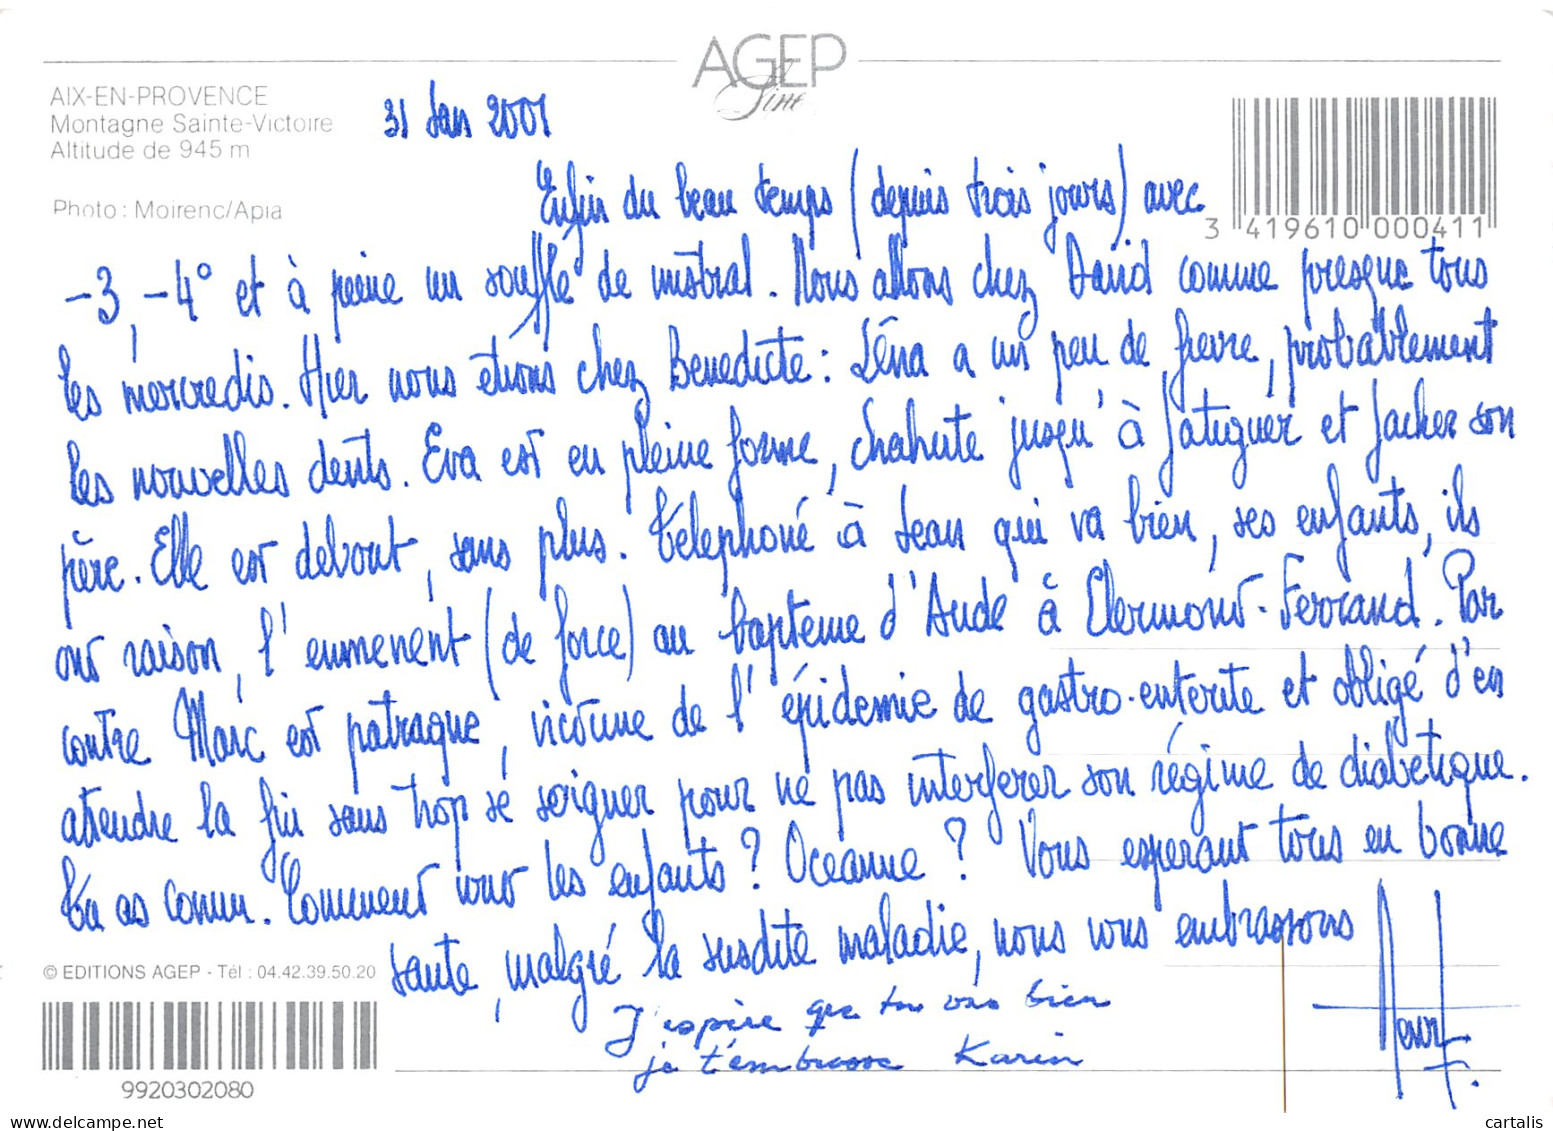 AGEP
Line
AIX-EN-PROVENCE
Montagne Sainte-Victoire
Altitude de 945 m
Photo : Moirenc/Apia
31 Jan 2001
3 419610 000411
Enfin du beau temps (depuis trois jours) avec
-3, -4° et à peine un souffle de mistral. Nous allons chez David comme presque tous
les mercredis. Hier nous étions chez Benedicte : Léna a un peu de fievre, probablement
les nouvelles dents. Eva est en pleine forme, chahute jusqu'à fatiguer et facher son
père. Elle est debout, sans plus. Téléphoné à Jean qui va bien, ses enfants, ils
ont raison, l'emmenent (de force) au bapteme d'Aude à Clermont-Ferrand. Par
contre Marc est patraque, victime de l'épidemie de gastro-enterite et obligé d'en
attendre la fin sans trop se soigner pour ne pas interferer son régime de diabetique.
Tu as connu. Comment vont les enfants ? Oceanne ? Vous esperant tous en bonne
sante, malgré la susdite maladie, nous vous embrassons
J'espère que tu vas bien
je t'embrasse Karin
© EDITIONS AGEP - Tél : 04.42.39.50.20
9920302080
cartalis